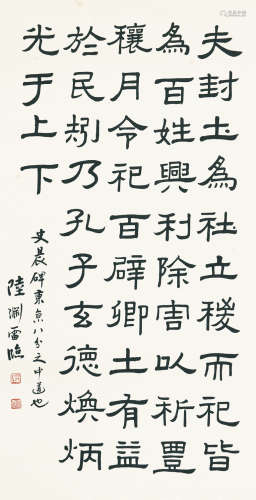 夫封土為社立稷而祀皆
為百姓興利除害以祈豊
穰月令祀百辟卿土有益
於民矧乃孔子玄德煥炳
光于上下
史晨碑東京八分之中道也
陸淵雷臨